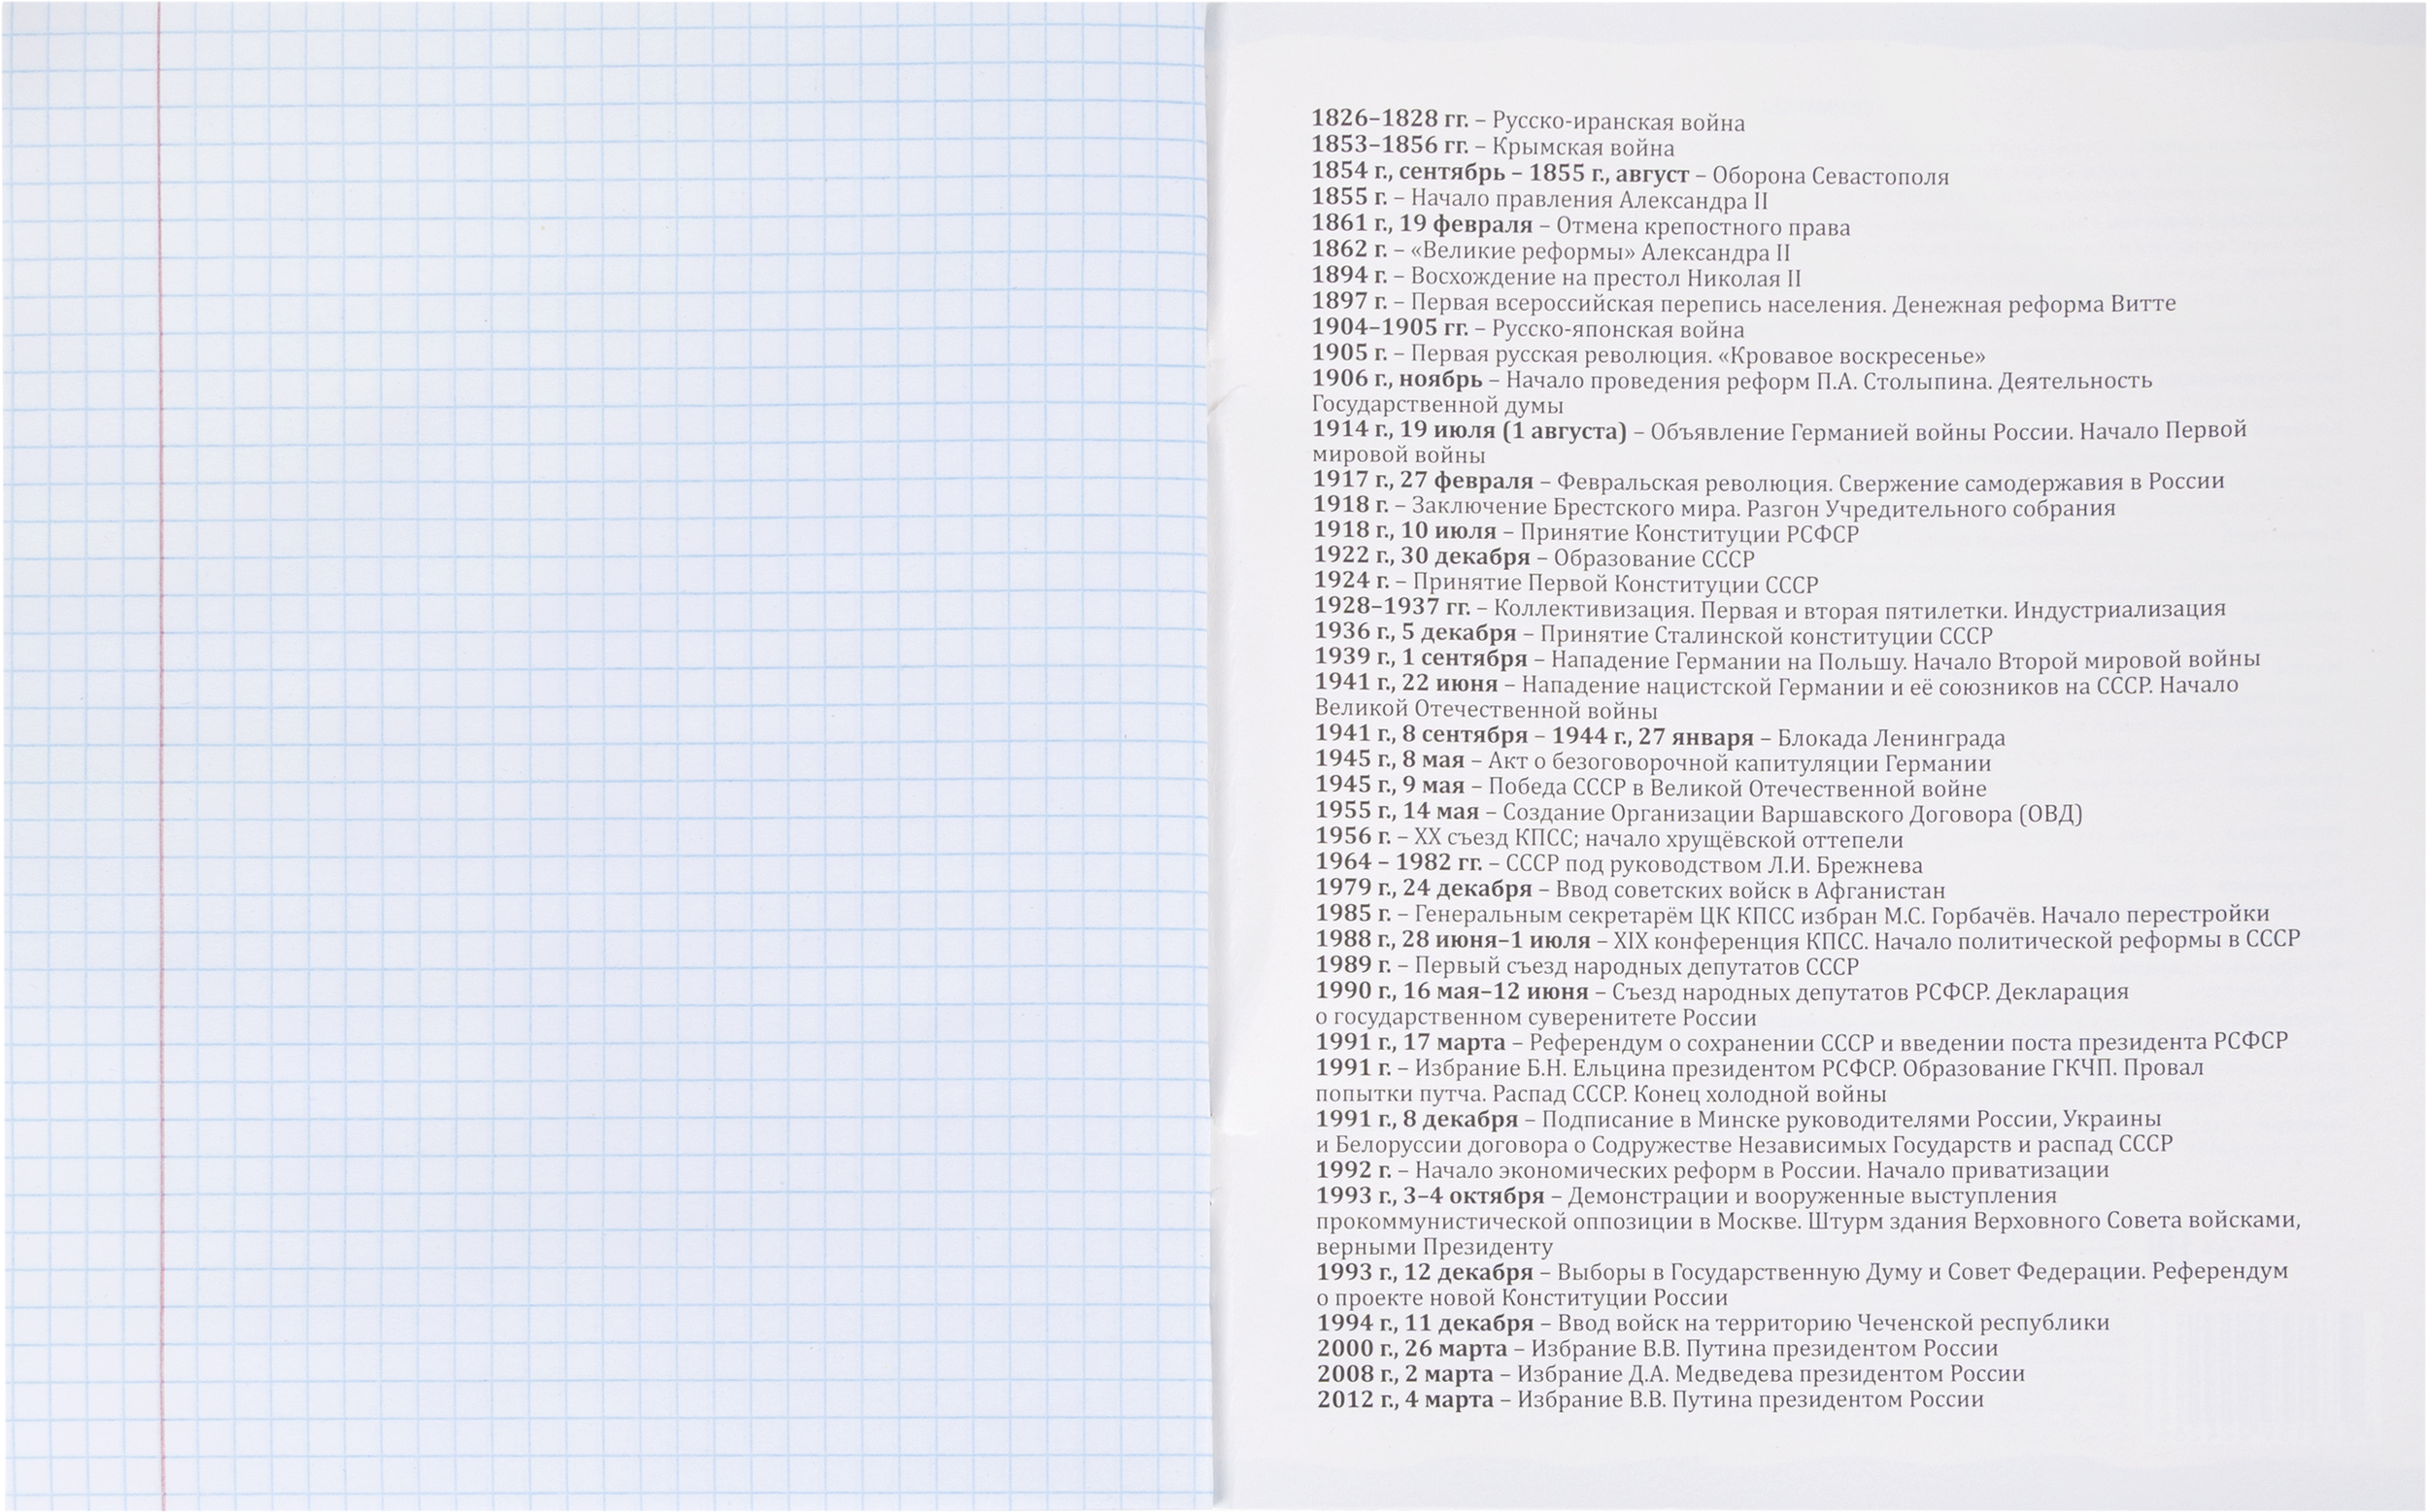 1826–1828 гг. – Русско-иранская война
1853–1856 гг. – Крымская война
1854 г., сентябрь – 1855 г., август – Оборона Севастополя
1855 г. – Начало правления Александра II
1861 г., 19 февраля – Отмена крепостного права
1862 г. – «Великие реформы» Александра II
1894 г. – Восхождение на престол Николая II
1897 г. – Первая всероссийская перепись населения. Денежная реформа Витте
1904–1905 гг. – Русско-японская война
1905 г. – Первая русская революция. «Кровавое воскресенье»
1906 г., ноябрь – Начало проведения реформ П.А. Столыпина. Деятельность
Государственной думы
1914 г., 19 июля (1 августа) – Объявление Германией войны России. Начало Первой
мировой войны
1917 г., 27 февраля – Февральская революция. Свержение самодержавия в России
1918 г. – Заключение Брестского мира. Разгон Учредительного собрания
1918 г., 10 июля – Принятие Конституции РСФСР
1922 г., 30 декабря – Образование СССР
1924 г. – Принятие Первой Конституции СССР
1928–1937 гг. – Коллективизация. Первая и вторая пятилетки. Индустриализация
1936 г., 5 декабря – Принятие Сталинской конституции СССР
1939 г., 1 сентября – Нападение Германии на Польшу. Начало Второй мировой войны
1941 г., 22 июня – Нападение нацистской Германии и её союзников на СССР. Начало
Великой Отечественной войны
1941 г., 8 сентября – 1944 г., 27 января – Блокада Ленинграда
1945 г., 8 мая – Акт о безоговорочной капитуляции Германии
1945 г., 9 мая – Победа СССР в Великой Отечественной войне
1955 г., 14 мая – Создание Организации Варшавского Договора (ОВД)
1956 г. – XX съезд КПСС; начало хрущёвской оттепели
1964 – 1982 гг. – СССР под руководством Л.И. Брежнева
1979 г., 24 декабря – Ввод советских войск в Афганистан
1985 г. – Генеральным секретарём ЦК КПСС избран М.С. Горбачёв. Начало перестройки
1988 г., 28 июня–1 июля – XIX конференция КПСС. Начало политической реформы в СССР
1989 г. – Первый съезд народных депутатов СССР
1990 г., 16 мая–12 июня – Съезд народных депутатов РСФСР. Декларация
о государственном суверенитете России
1991 г., 17 марта – Референдум о сохранении СССР и введении поста президента РСФСР
1991 г. – Избрание Б.Н. Ельцина президентом РСФСР. Образование ГКЧП. Провал
попытки путча. Распад СССР. Конец холодной войны
1991 г., 8 декабря – Подписание в Минске руководителями России, Украины
и Белоруссии договора о Содружестве Независимых Государств и распад СССР
1992 г. – Начало экономических реформ в России. Начало приватизации
1993 г., 3–4 октября – Демонстрации и вооруженные выступления
прокоммунистической оппозиции в Москве. Штурм здания Верховного Совета войсками,
верными Президенту
1993 г., 12 декабря – Выборы в Государственную Думу и Совет Федерации. Референдум
о проекте новой Конституции России
1994 г., 11 декабря – Ввод войск на территорию Чеченской республики
2000 г., 26 марта – Избрание В.В. Путина президентом России
2008 г., 2 марта – Избрание Д.А. Медведева президентом России
2012 г., 4 марта – Избрание В.В. Путина президентом России